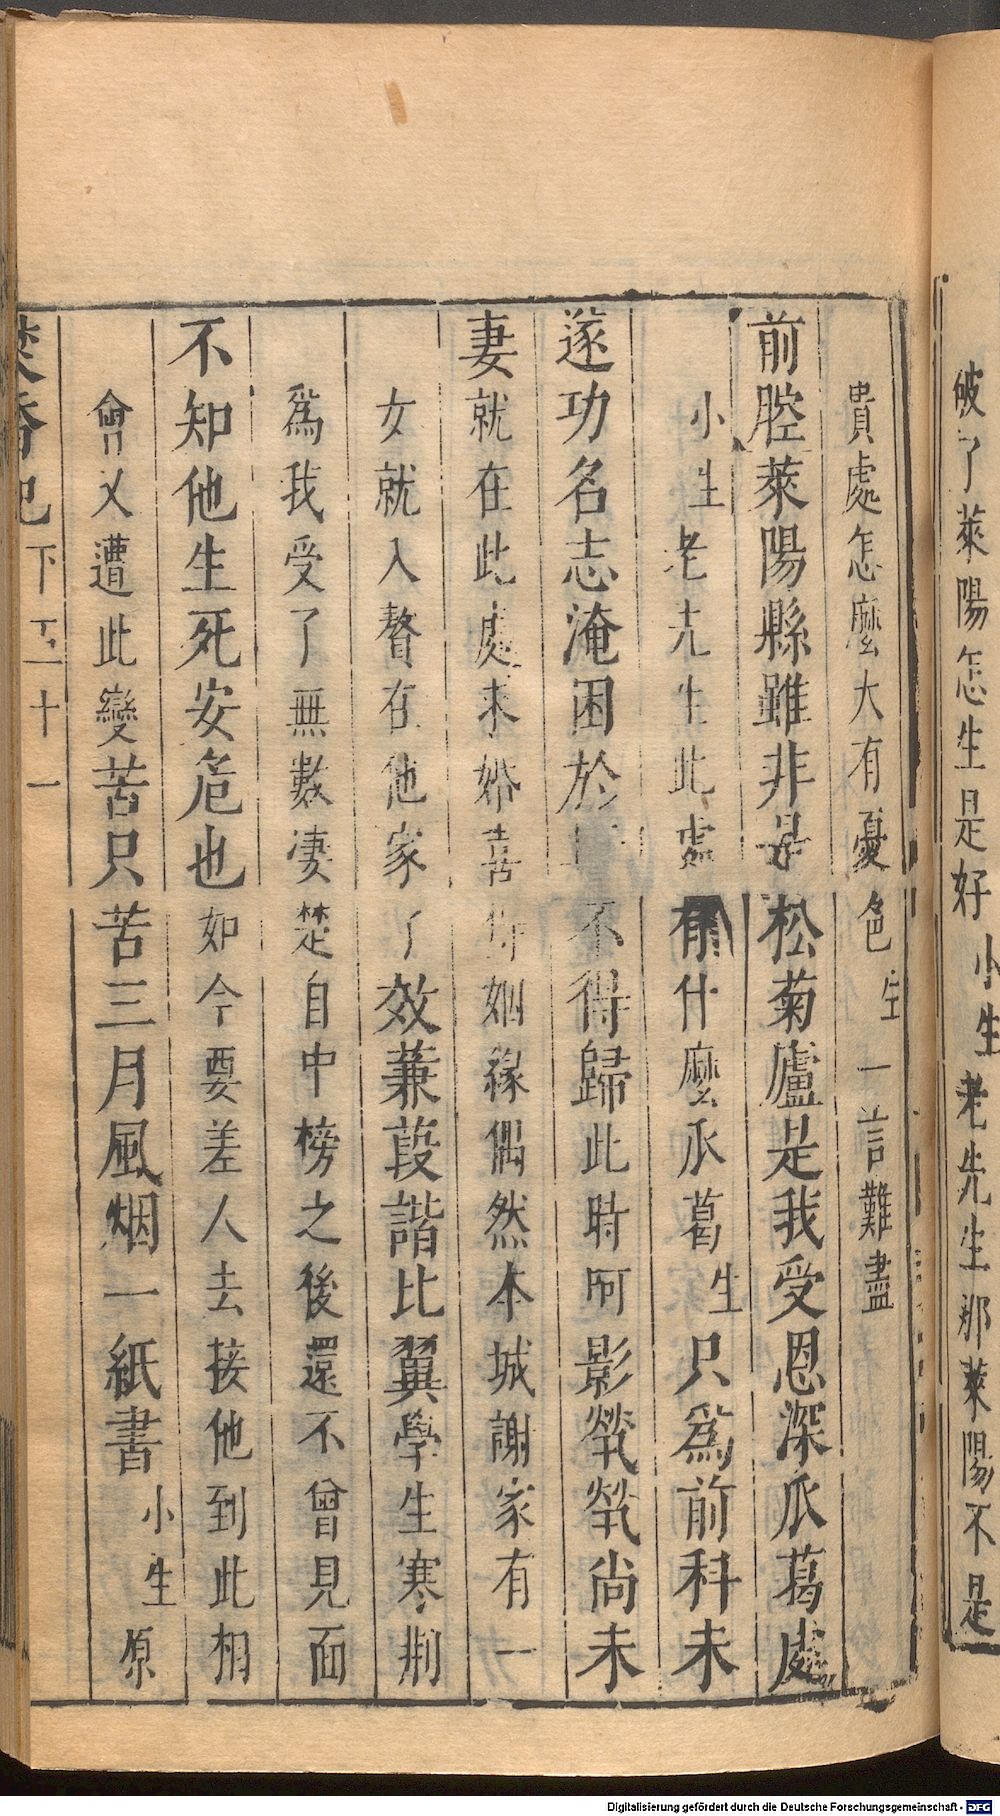 破了萊陽怎生是好小生老先生那萊陽不是
貴處怎麼大有憂色生一言難盡
前腔萊陽縣雖非是松菊廬是我受恩深瓜葛處
小生老先生此處有什麼瓜葛生只爲前科未
遂功名志淹困於 不得歸此時呵影煢煢尚未
妻就在此處未婚喜 姻緣偶然本城謝家有一
女就入贅在他家了效蒹葭諧比翼學生寒荆
爲我受了無數凄楚自中榜之後還不曾見面
不知他生死安危也如今要差人去接他到此相
會又遭此變苦只苦三月風烟一紙書小生原
焚香記下 五十一
Digitalisierung gefördert durch die Deutsche Forschungsgemeinschaft - DFG